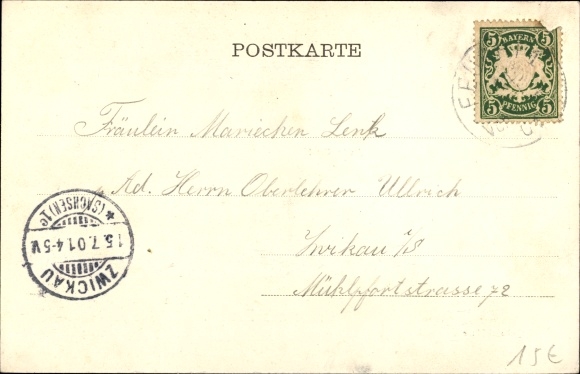 POSTKARTE
5 BAYERN 5
5 PFENNIG 5
Fräulein Mariechen Lenk
Ad. Herrn Oberlehrer Ullrich
Zwikau i/S
Mühlpfortstrasse 72
ZWICKAU
15.7.01.4-5V.
* (SACHSEN) 1e
15€